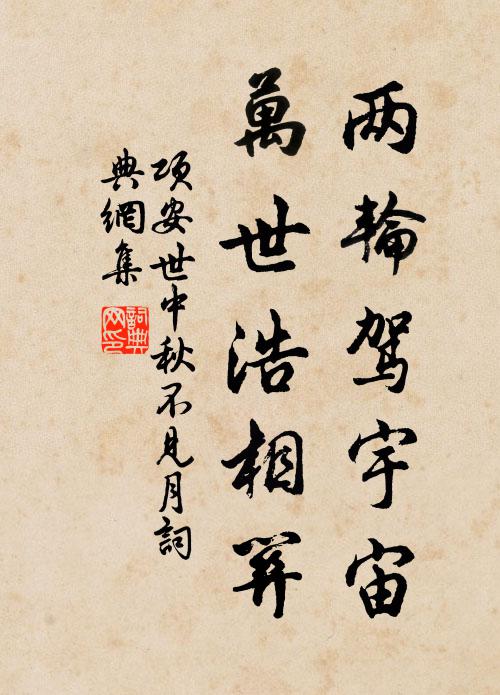 两輪駕宇宙
萬世浩相
項安世中秋不見月詞
典網集
詞典
网印